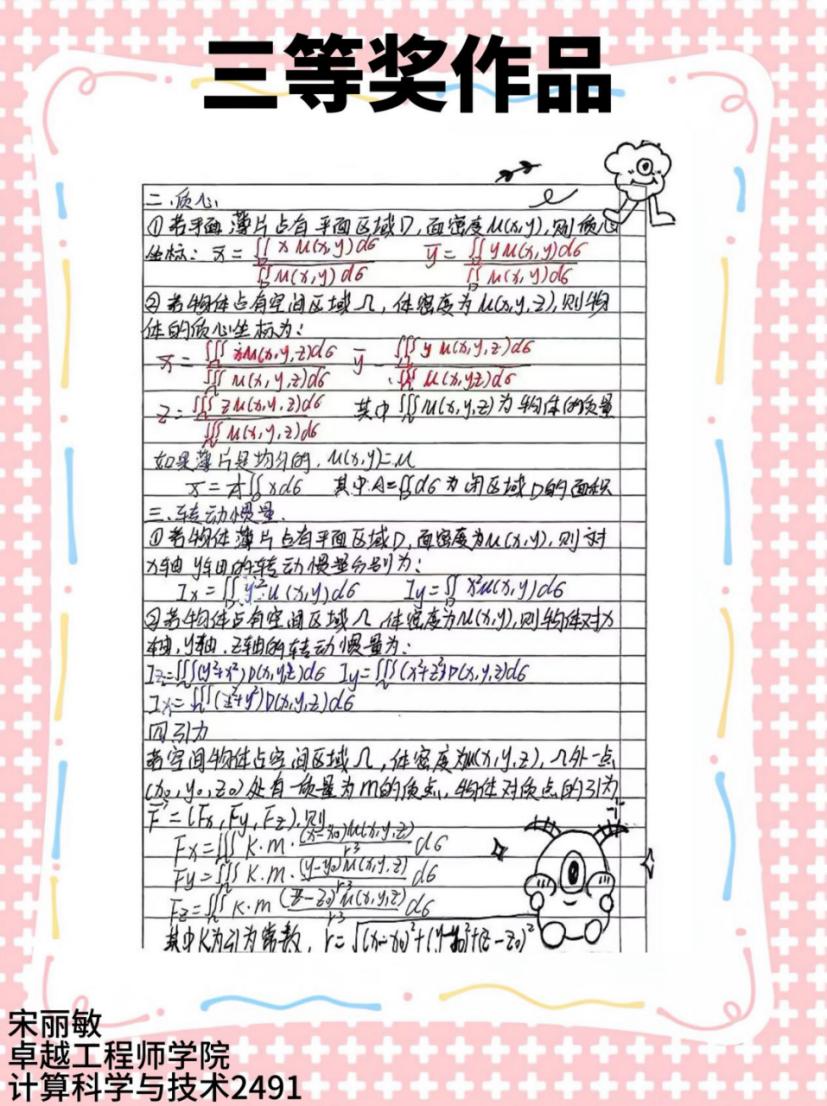 三等奖作品
二、质心、
①若平面薄片占有平面区域D,面密度μ(x,y),则质心
坐标: x̄ = ∬_D xμ(x,y)dσ / ∬_D μ(x,y)dσ ȳ = ∬_D yμ(x,y)dσ / ∬_D μ(x,y)dσ
②若物体占有空间区域Ω,体密度为μ(x,y,z),则物
体的质心坐标为:
x̄ = ∭_Ω xμ(x,y,z)dσ / ∭_Ω μ(x,y,z)dσ ȳ ∭_Ω yμ(x,y,z)dσ / ∭_Ω μ(x,yz)dσ
z̄ = ∭_Ω zμ(x,y,z)dσ / ∭_Ω μ(x,y,z)dσ 其中∭_Ω μ(x,y,z)为物体的质量
如果薄片是均匀的,μ(x,y)=μ
x̄ = 1/A ∬_D xdσ 其中A=∬_D dσ为闭区域D的面积
三、转动惯量.
①若物体薄片占有平面区域D,面密度为μ(x,y),则对
x轴 y轴的转动惯量分别为:
Ix = ∬_D y²μ(x,y)dσ Iy = ∬_D x²μ(x,y)dσ
②若物体占有空间区域Ω,体密度为μ(x,y),则物体对x
轴,y轴.z轴的转动惯量为:
Iz=∭_Ω(y²+x²)ρ(x,y,z)dσ Iy=∭_Ω(x²+z²)ρ(x,y,z)dσ
Ix=∭_Ω(z²+y²)ρ(x,y,z)dσ
四引力
若空间物体占空间区域Ω,体密度为μ(x,y,z),Ω外一点
(x₀,y₀,z₀)处有一质量为m的质点,物体对质点的引为
F=(Fx,Fy,Fz),则
Fx=∭_Ω K·m·(x-x₀)μ(x,y,z)/r³ dσ
Fy=∭_Ω K·m·(y-y₀)μ(x,y,z)/r³ dσ
Fz=∭_Ω K·m (z-z₀)μ(x,y,z)/r³ dσ
其中K为引为常数,r=√(x-x₀)²+(y-y₀)²+(z-z₀)²
宋丽敏
卓越工程师学院
计算科学与技术2491